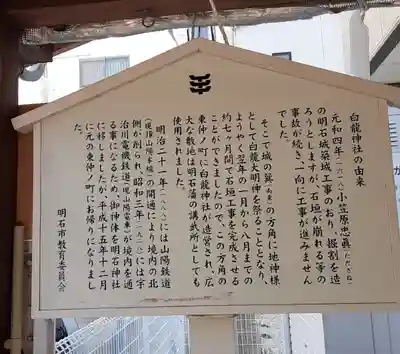 白龍神社の由来
元和四年(一六一八)小笠原忠眞(ただざね)
の明石城築城工事のおり、掘割を造
ろうとしますが、石垣が崩れる等の
事故が続き、一向に工事が進みません
でした。
そこで城の巽(南東)の方角に地神様
として白龍大明神を祭ることとなり、
ようやく翌年の一月から八月までの
約七ヶ月間で石垣工事を完成させる
ことができましたので、この方角の
東仲ノ町に白龍神社が造営され、広
大な敷地は明石藩の講武所としても
使用されました。
明治二十一年(一八八八)には山陽鉄道
(現JR山陽本線)の開通により境内の北
側が削られ、昭和二年(一九二七)には宇
治川電機鉄道(現山陽電車)が境内を通
る事になるため、御神体を明石神社
に移しましたが、平成十五年十二月
に元の東仲ノ町にお帰りになりまし
た。
明石市教育委員会